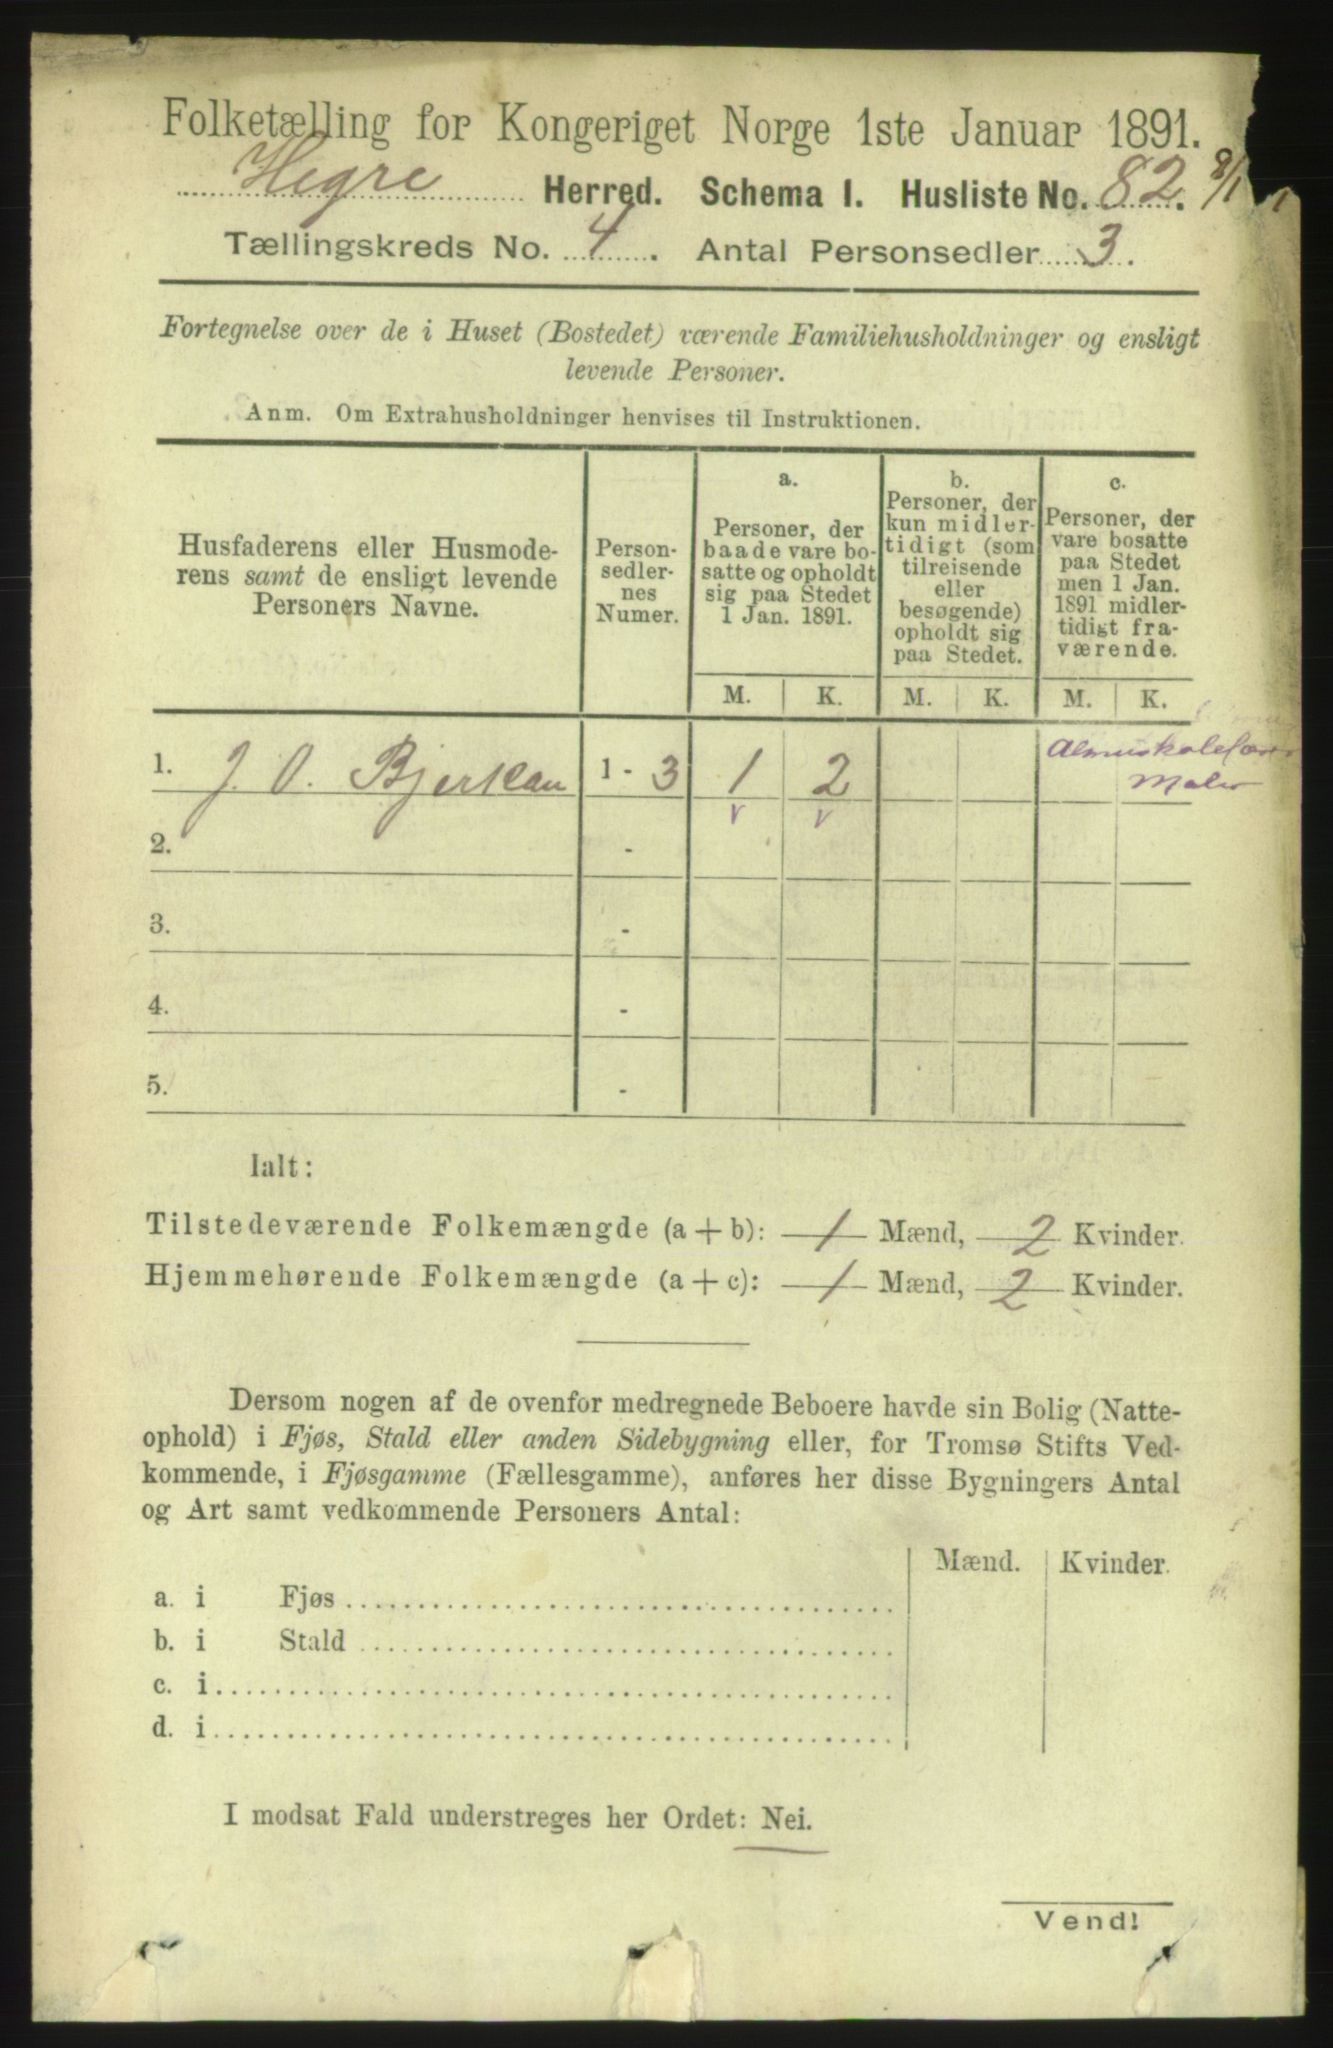 Folketælling for Kongeriget Norge 1ste Januar 1891.
Hegre Herred. Schema I. Husliste No. 82. 8/1
Tællingskreds No. 4. Antal Personsedler 3.
Fortegnelse over de i Huset (Bostedet) værende Familiehusholdninger og ensligt
levende Personer.
Anm. Om Extrahusholdninger henvises til Instruktionen.
Husfaderens eller Husmode-
rens samt de ensligt levende
Personers Navne.
Person-
sedler-
nes
Numer.
a.
Personer, der
baade vare bo-
satte og opholdt
sig paa Stedet
1 Jan. 1891.
b.
Personer, der
kun midler-
tidigt (som
tilreisende
eller
besøgende)
opholdt sig
paa Stedet.
c.
Personer, der
vare bosatte
paa Stedet
men 1 Jan.
1891 midler-
tidigt fra-
værende.
M. K. M. K. M. K.
1. J. O. Bjerkan 1 - 3 1 2
v v
Maler
2. -
3. -
4. -
5. -
Ialt:
Tilstedeværende Folkemængde (a + b): 1 Mænd, 2 Kvinder.
Hjemmehørende Folkemængde (a + c): 1 Mænd, 2 Kvinder.
Dersom nogen af de ovenfor medregnede Beboere havde sin Bolig (Natte-
ophold) i Fjøs, Stald eller anden Sidebygning eller, for Tromsø Stifts Ved-
kommende, i Fjøsgamme (Fællesgamme), anføres her disse Bygningers Antal
og Art samt vedkommende Personers Antal:
Mænd. Kvinder.
a. i Fjøs
b. i Stald
c. i
d. i
I modsat Fald understreges her Ordet: Nei.
Vend!